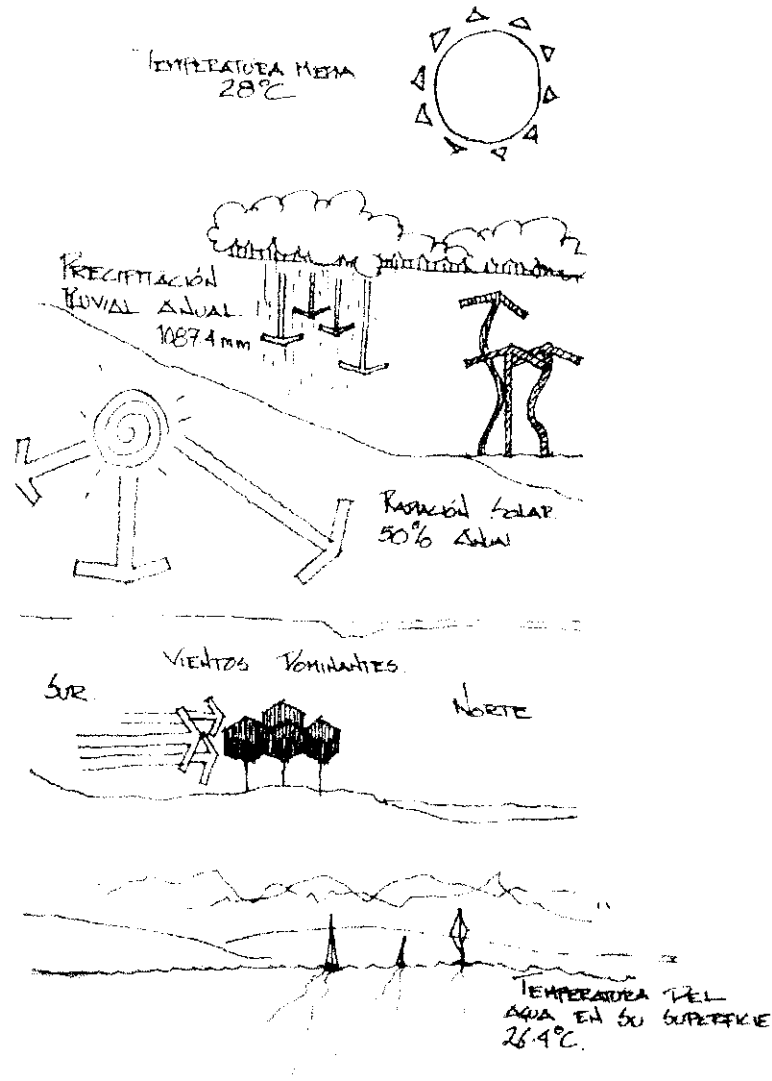 TEMPERATURA MEDIA
28°C
PRECIPITACIÓN
PLUVIAL ANUAL.
1087.4 mm
RADIACIÓN SOLAR.
50% ANUAL
VIENTOS DOMINANTES.
SUR.
NORTE
TEMPERATURA DEL
AGUA EN SU SUPERFICIE
26.4°C.